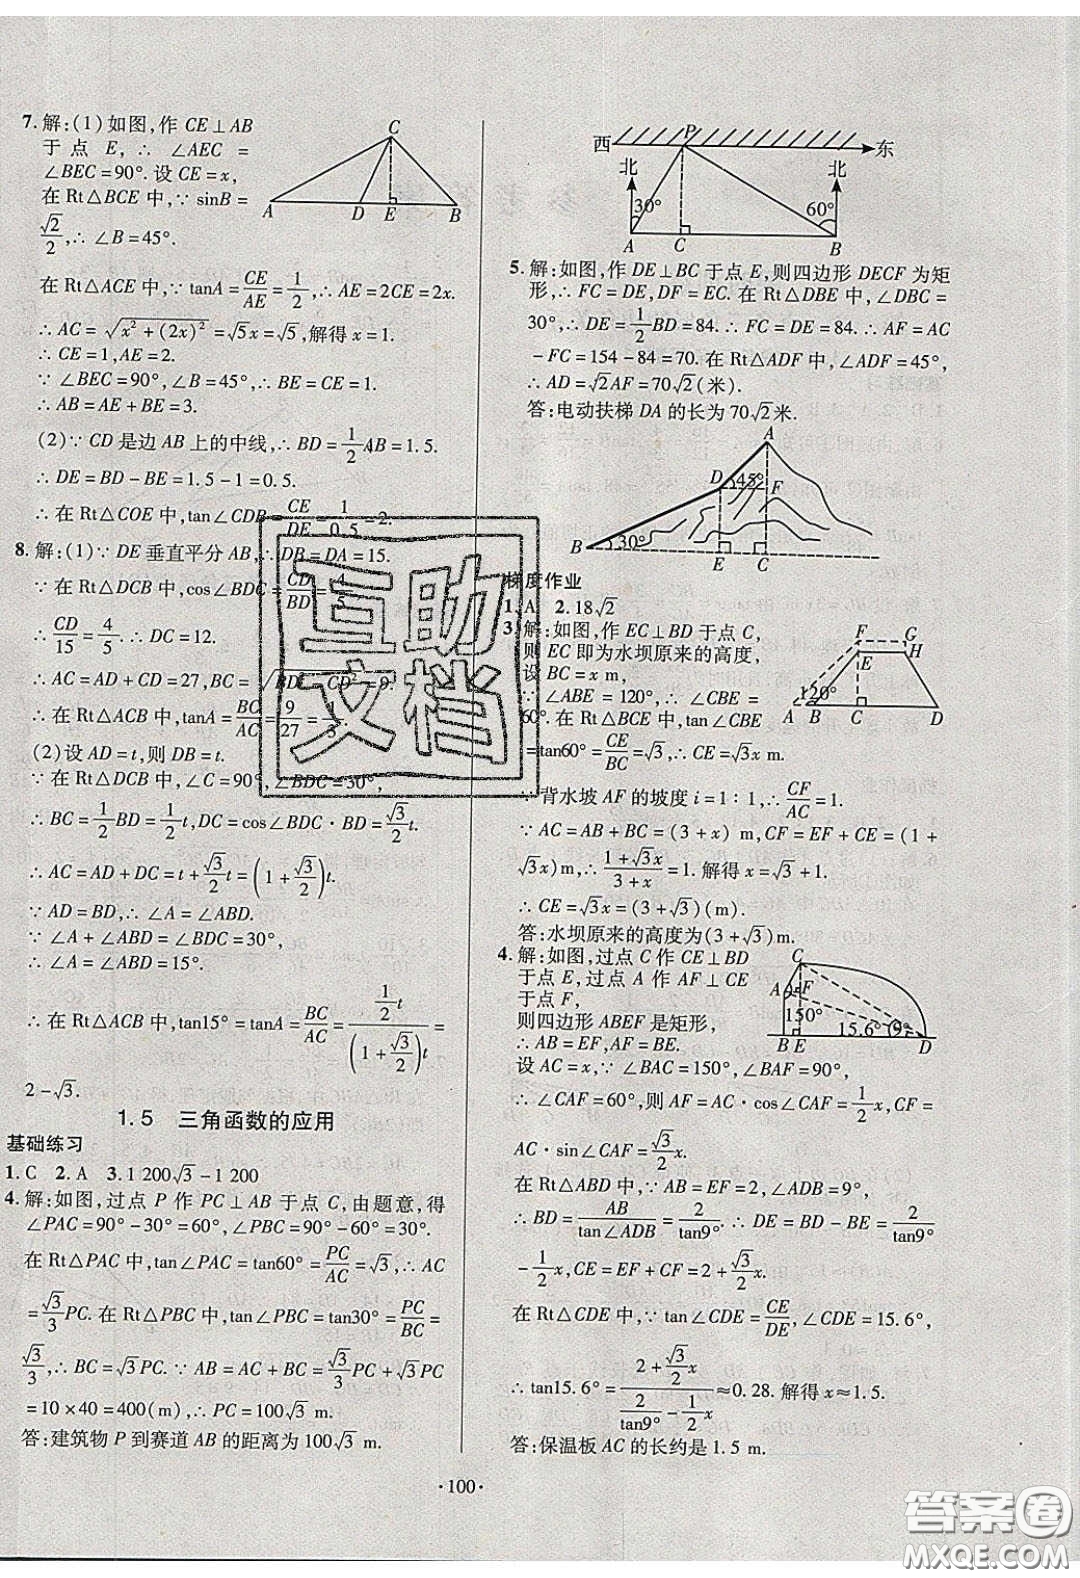 7.解:(1)如图,作 CE⊥AB
于点 E,∴ ∠AEC =
∠BEC=90°. 设 CE=x,
在 Rt△BCE 中,∵ sinB=
√2/2,∴ ∠B=45°.
在 Rt△ACE 中,∵ tanA=CE/AE=1/2,∴ AE=2CE=2x.
∴ AC=√(x²+(2x)²)=√5x=√5,解得 x=1.
∴ CE=1,AE=2.
∵ ∠BEC=90°,∠B=45°,∴ BE=CE=1.
∴ AB=AE+BE=3.
(2)∵ CD 是边 AB 上的中线,∴ BD=1/2AB=1.5.
∴ DE=BD-BE=1.5-1=0.5.
∴ 在 Rt△COE 中,tan∠CDB=CE/DE=1/0.5=2.
8.解:(1)∵ DE 垂直平分 AB,∴ DB=DA=15.
∵ 在 Rt△DCB 中,cos∠BDC=CD/BD=4/5
∴ CD/15=4/5.∴ DC=12.
∴ AC=AD+CD=27,BC=√(BD²-CD²)=9.
∴ 在 Rt△ACB 中,tanA=BC/AC=9/27=1/3.
(2)设 AD=t,则 DB=t.
∵ 在 Rt△DCB 中,∠C=90°,∠BDC=30°,
∴ BC=1/2BD=1/2t,DC=cos∠BDC·BD=√3/2t.
∴ AC=AD+DC=t+√3/2t=(1+√3/2)t.
∵ AD=BD,∴ ∠A=∠ABD.
∵ ∠A+∠ABD=∠BDC=30°,
∴ ∠A=∠ABD=15°.
∴ 在 Rt△ACB 中,tan15°=tanA=BC/AC=(1/2t)/((1+√3/2)t)=
2-√3.
1.5 三角函数的应用
基础练习
1.C 2.A 3.1 200√3-1 200
4.解:如图,过点 P 作 PC⊥AB 于点 C,由题意,得
∠PAC=90°-30°=60°,∠PBC=90°-60°=30°.
在 Rt△PAC 中,tan∠PAC=tan60°=PC/AC=√3,∴ AC
=√3/3PC. 在 Rt△PBC 中,tan∠PBC=tan30°=PC/BC=
√3/3,∴ BC=√3PC.∵ AB=AC+BC=√3/3PC+√3PC
=10×40=400(m),∴ PC=100√3 m.
答:建筑物 P 到赛道 AB 的距离为 100√3 m.
C
A D E B
西 P 东
北 北
30° 60°
A C B
5.解:如图,作 DE⊥BC 于点 E,则四边形 DECF 为矩
形,∴ FC=DE,DF=EC. 在 Rt△DBE 中,∠DBC=
30°,∴ DE=1/2BD=84.∴ FC=DE=84.∴ AF=AC
-FC=154-84=70. 在 Rt△ADF 中,∠ADF=45°,
∴ AD=√2AF=70√2(米).
答:电动扶梯 DA 的长为 70√2米.
A
D 45° F
B 30° E C
梯度作业
1.A 2.18√2
3.解:如图,作 EC⊥BD 于点 C,
则 EC 即为水坝原来的高度,
设 BC=x m,
∵ ∠ABE=120°,∴ ∠CBE=
60°. 在 Rt△BCE 中,tan∠CBE
=tan60°=CE/BC=√3,∴ CE=√3x m.
∵ 背水坡 AF 的坡度 i=1∶1,∴ CF/AC=1.
∵ AC=AB+BC=(3+x) m,CF=EF+CE=(1+
√3x)m,∴ (1+√3x)/(3+x)=1. 解得 x=√3+1.
∴ CE=√3x=(3+√3)(m).
答:水坝原来的高度为(3+√3)m.
F G
E H
120°
A B C D
4.解:如图,过点 C 作 CE⊥BD
于点 E,过点 A 作 AF⊥CE
于点 F,
则四边形 ABEF 是矩形,
∴ AB=EF,AF=BE.
设 AC=x,∵ ∠BAC=150°,∠BAF=90°,
∴ ∠CAF=60°,则 AF=AC·cos∠CAF=1/2x,CF=
AC·sin∠CAF=√3/2x.
在 Rt△ABD 中,∵ AB=EF=2,∠ADB=9°,
∴ BD=AB/tan∠ADB=2/tan9°.∴ DE=BD-BE=2/tan9°
-1/2x,CE=EF+CF=2+√3/2x.
在 Rt△CDE 中,∵ tan∠CDE=CE/DE,∠CDE=15.6°,
∴ tan15.6°=(2+√3/2x)/(2/tan9°-1/2x)≈0.28. 解得 x≈1.5.
答:保温板 AC 的长约是 1.5 m.
C
A F
150° 15.6° 9°
B E D
·100·
互助
文档
答案圈
MXQE.COM